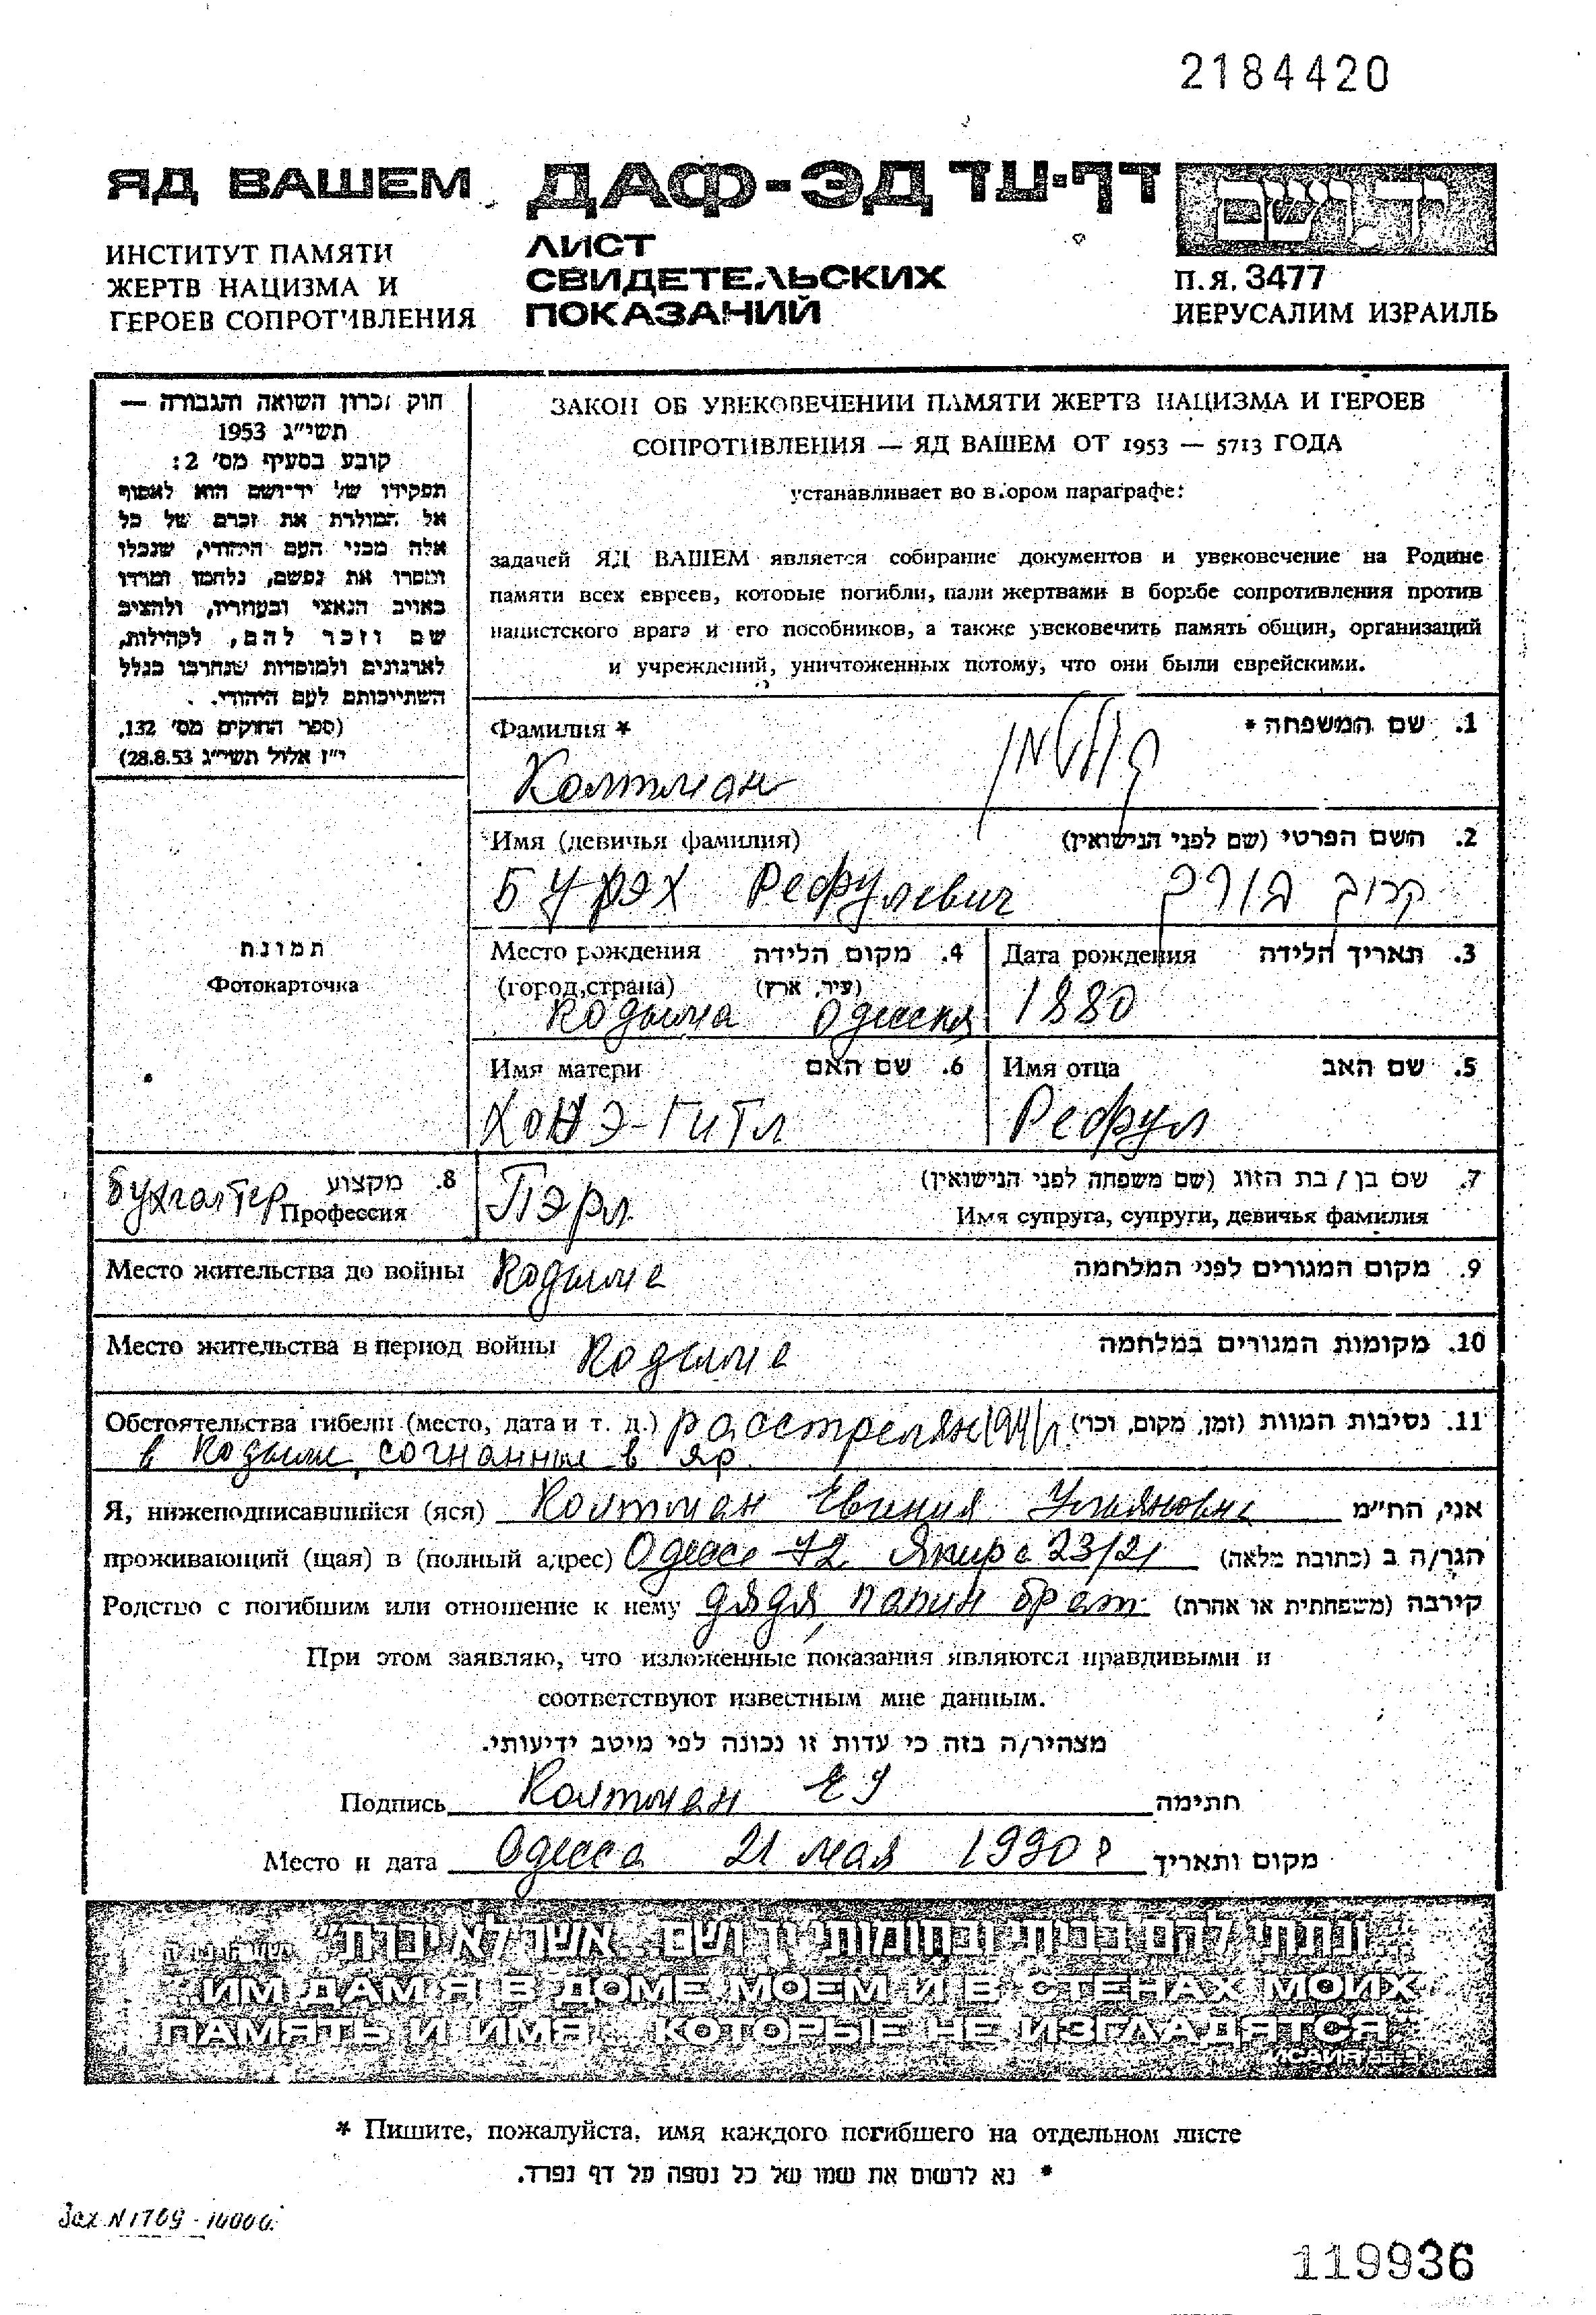 2184420
ЯД ВАШЕМ ДАФ-ЭД דף-עד יד ושם
ИНСТИТУТ ПАМЯТИ
ЖЕРТВ НАЦИЗМА И
ГЕРОЕВ СОПРОТИВЛЕНИЯ
ЛИСТ
СВИДЕТЕЛЬСКИХ
ПОКАЗАНИЙ
П.Я. 3477
ИЕРУСАЛИМ ИЗРАИЛЬ
חוק זכרון השואה והגבורה —
תשי"ג 1953
קובע בסעיף מס' 2:
תפקידו של יד-ושם הוא לאסוף
אל המולדת את זכרם של כל
אלה מבני העם היהודי, שנפלו
ומסרו את נפשם, נלחמו ומרדו
באויב הנאצי ובעוזריו, ולהציב
שם וזכר להם, לקהילות,
לארגונים ולמוסדות שנחרבו בגלל
השתייכותם לעם היהודי.
(ספר החוקים מס' 132,
י"ז אלול תשי"ג 28.8.53)
ЗАКОН ОБ УВЕКОВЕЧЕНИИ ПАМЯТИ ЖЕРТВ НАЦИЗМА И ГЕРОЕВ
СОПРОТИВЛЕНИЯ — ЯД ВАШЕМ ОТ 1953 — 5713 ГОДА
устанавливает во втором параграфе:
задачей ЯД ВАШЕМ является собирание документов и увековечение на Родине
памяти всех евреев, которые погибли, пали жертвами в борьбе сопротивления против
нацистского врага и его пособников, а также увековечить память общин, организаций
и учреждений, уничтоженных потому, что они были еврейскими.
Фамилия * 1. שם המשפחה *
Колтман
Имя (девичья фамилия) 2. השם הפרטי (שם לפני הנישואין)
Бурэх Рефулевич ברוך
תמונה
Фотокарточка
Место рождения 4. מקום הלידה
(город, страна) (עיר, ארץ)
Кодыма Одесская
Дата рождения 3. תאריך הלידה
1880
Имя матери 6. שם האם
Хонэ-Гитл
Имя отца 5. שם האב
Рефул
Бухгалтер 8. מקצוע
Профессия
Пэрл
7. שם בן / בת הזוג (שם משפחה לפני הנישואין)
Имя супруга, супруги, девичья фамилия
Место жительства до войны Кодыма 9. מקום המגורים לפני המלחמה
Место жительства в период войны Кодыма 10. מקומות המגורים במלחמה
Обстоятельства гибели (место, дата и т. д.) расстрелян 1941 г 11. נסיבות המוות (זמן, מקום, וכו')
в Кодыме, согнанные в яр
Я, нижеподписавшийся (яся) Колтман Евгения Ульяновна אני, הח"מ
проживающий (щая) в (полный адрес) Одесса 72 Якира 23/21 הגר/ה ב (כתובת מלאה)
Родство с погибшим или отношение к нему дядя, папин брат קירבה (משפחתית או אחרת)
При этом заявляю, что изложенные показания являются правдивыми и
соответствуют известным мне данным.
מצהיר/ה בזה כי עדות זו נכונה לפי מיטב ידיעותי.
Подпись Колтман ЕУ חתימה
Место и дата Одесса 21 мая 1990 г מקום ותאריך
"ונתתי להם בביתי ובחומותי יד ושם... אשר לא יכרת"
"ИМ ДАМ Я В ДОМЕ МОЕМ И В СТЕНАХ МОИХ
ПАМЯТЬ И ИМЯ... КОТОРЫЕ НЕ ИЗГЛАДЯТСЯ"
* Пишите, пожалуйста, имя каждого погибшего на отдельном листе
* נא לרשום את שמו של כל נספה על דף נפרד.
Зак N 1769 - 10000
119936